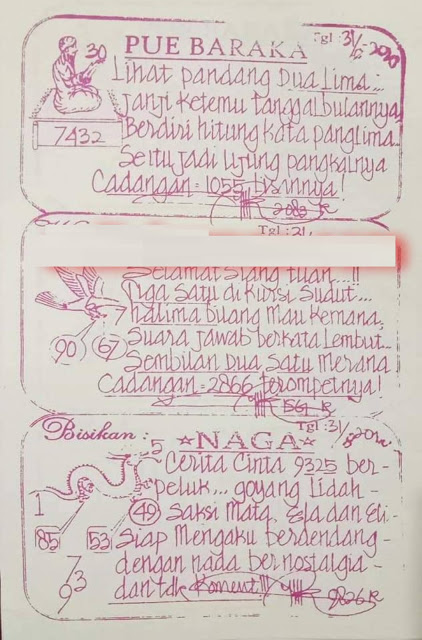 PUE BARAKA Tgl: 31/8-2020
30
Lihat pandang Dua Lima...
Janji ketemu tanggal bulannya
7432
Berdiri hitung kata panglima..
Seitu jadi ujung pangkalnya
Cadangan = 1055 tisannya!
2083 K
Tgl: 31
Selamat Siang tuan...!!
Tiga Satu di kursi Sudut...
halima buang mau kemana,
90 67
Suara jawab berkata lembut...
Sembilan Dua Satu merana
Cadangan = 2866 terompetnya!
Bisikan: ☆NAGA☆ Tgl: 31/8 2020
5
Cerita Cinta 9325 ber-
peluk... goyang lidah -
1
49
Saksi Mata, Ela dan Eli -
85 53
Siap Mengaku berdendang -
7
3
9
dengan nada bernostalgia -
dan tdk Koment!!!
9826 K